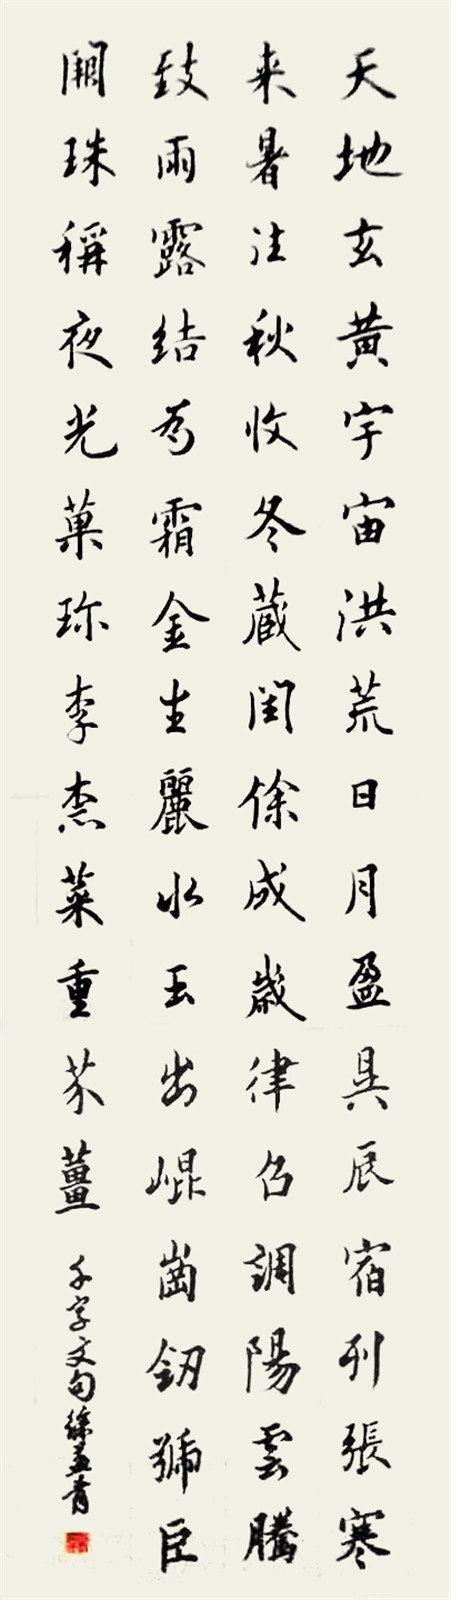 天地玄黄宇宙洪荒日月盈昃辰宿列張寒
来暑往秋收冬蔵閏馀成歲律召調陽雲騰
致雨露結為霜金生麗水玉出崐崗劒號臣
闕珠稱夜光菓珎李柰菜重芥薑
千字文句徐